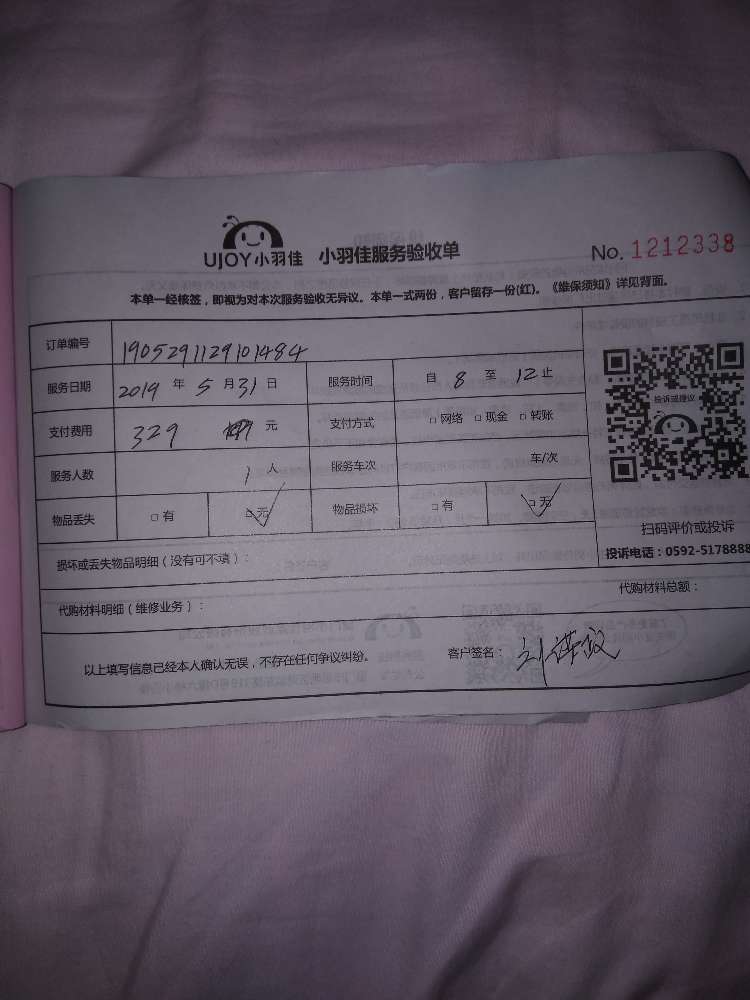 UJOY小羽佳 小羽佳服务验收单 No. 1212338
本单一经核签，即视为对本次服务验收无异议。本单一式两份，客户留存一份(红)。《维保须知》详见背面。
订单编号 1905291129101484
服务日期 2019 年 5 月 31 日 服务时间 自 8 至 12 止
支付费用 329 元 支付方式 □ 网络 □ 现金 □ 转账
投诉或建议
服务人数 1 人 服务车次 车/次
物品丢失 □ 有 □ 无 物品损坏 □ 有 □ 无
扫码评价或投诉
投诉电话：0592-5178888
损坏或丢失物品明细（没有可不填）：
代购材料明细（维修业务）： 代购材料总额：
以上填写信息已经本人确认无误，不存在任何争议纠纷。 客户签名：